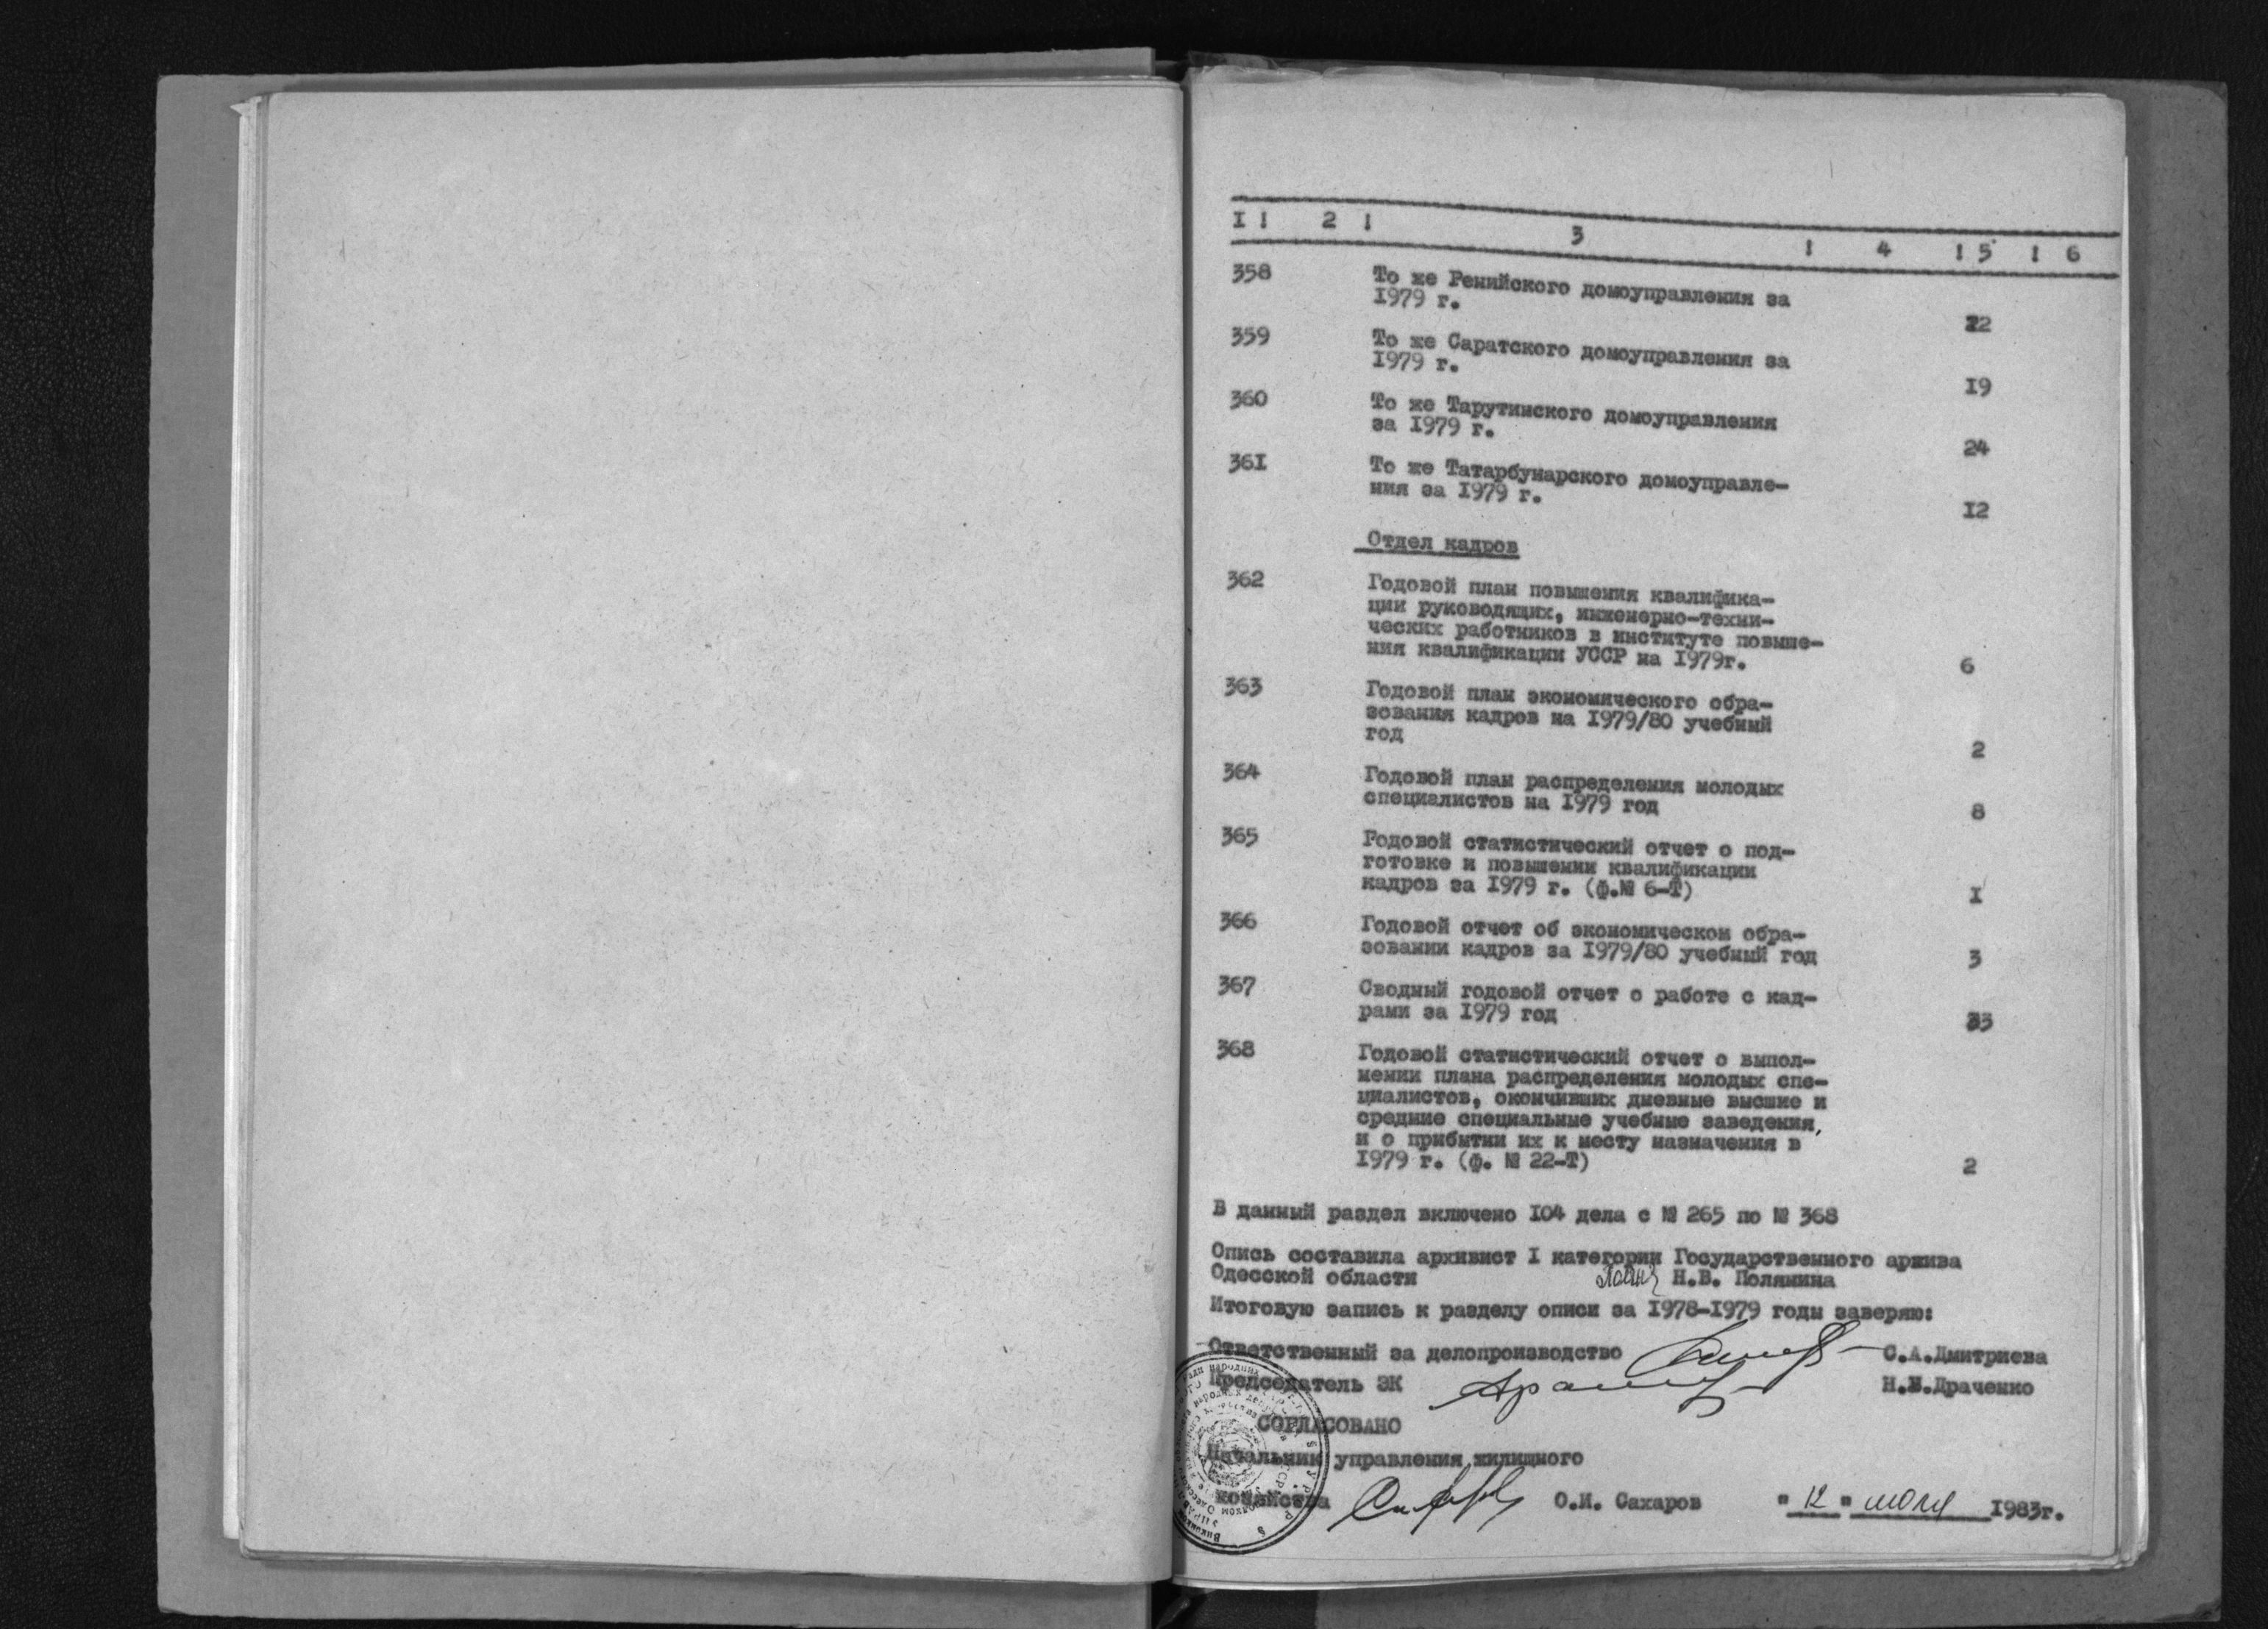 I ! 2 ! 3 ! 4 ! 5 ! 6
358 То же Ренийского домоуправления за
1979 г. 22
359 То же Саратского домоуправления за
1979 г. 19
360 То же Тарутинского домоуправления
за 1979 г. 24
361 То же Татарбунарского домоуправле-
ния за 1979 г. 12
Отдел кадров
362 Годовой план повышения квалифика-
ции руководящих, инженерно-техни-
ческих работников в институте повыше-
ния квалификации УССР на 1979г. 6
363 Годовой план экономического обра-
зования кадров на 1979/80 учебный
год 2
364 Годовой план распределения молодых
специалистов на 1979 год 8
365 Годовой статистический отчет о под-
готовке и повышении квалификации
кадров за 1979 г. (ф.№ 6-Т) I
366 Годовой отчет об экономическом обра-
зовании кадров за 1979/80 учебный год 3
367 Сводный годовой отчет о работе с кад-
рами за 1979 год 33
368 Годовой статистический отчет о выпол-
нении плана распределения молодых спе-
циалистов, окончивших дневные высшие и
средние специальные учебные заведения,
и о прибытии их к месту назначения в
1979 г. (ф. № 22-Т) 2
В данный раздел включено 104 дела с № 265 по № 368
Опись составила архивист I категории Государственного архива
Одесской области Н.В. Полянина
Итоговую запись к разделу описи за 1978-1979 годы заверяю:
Ответственный за делопроизводство С.А.Дмитриева
Председатель ЭК Драченко
СОГЛАСОВАНО
Начальник управления жилищного
хозяйства О.И. Сахаров "12" июля 1983г.